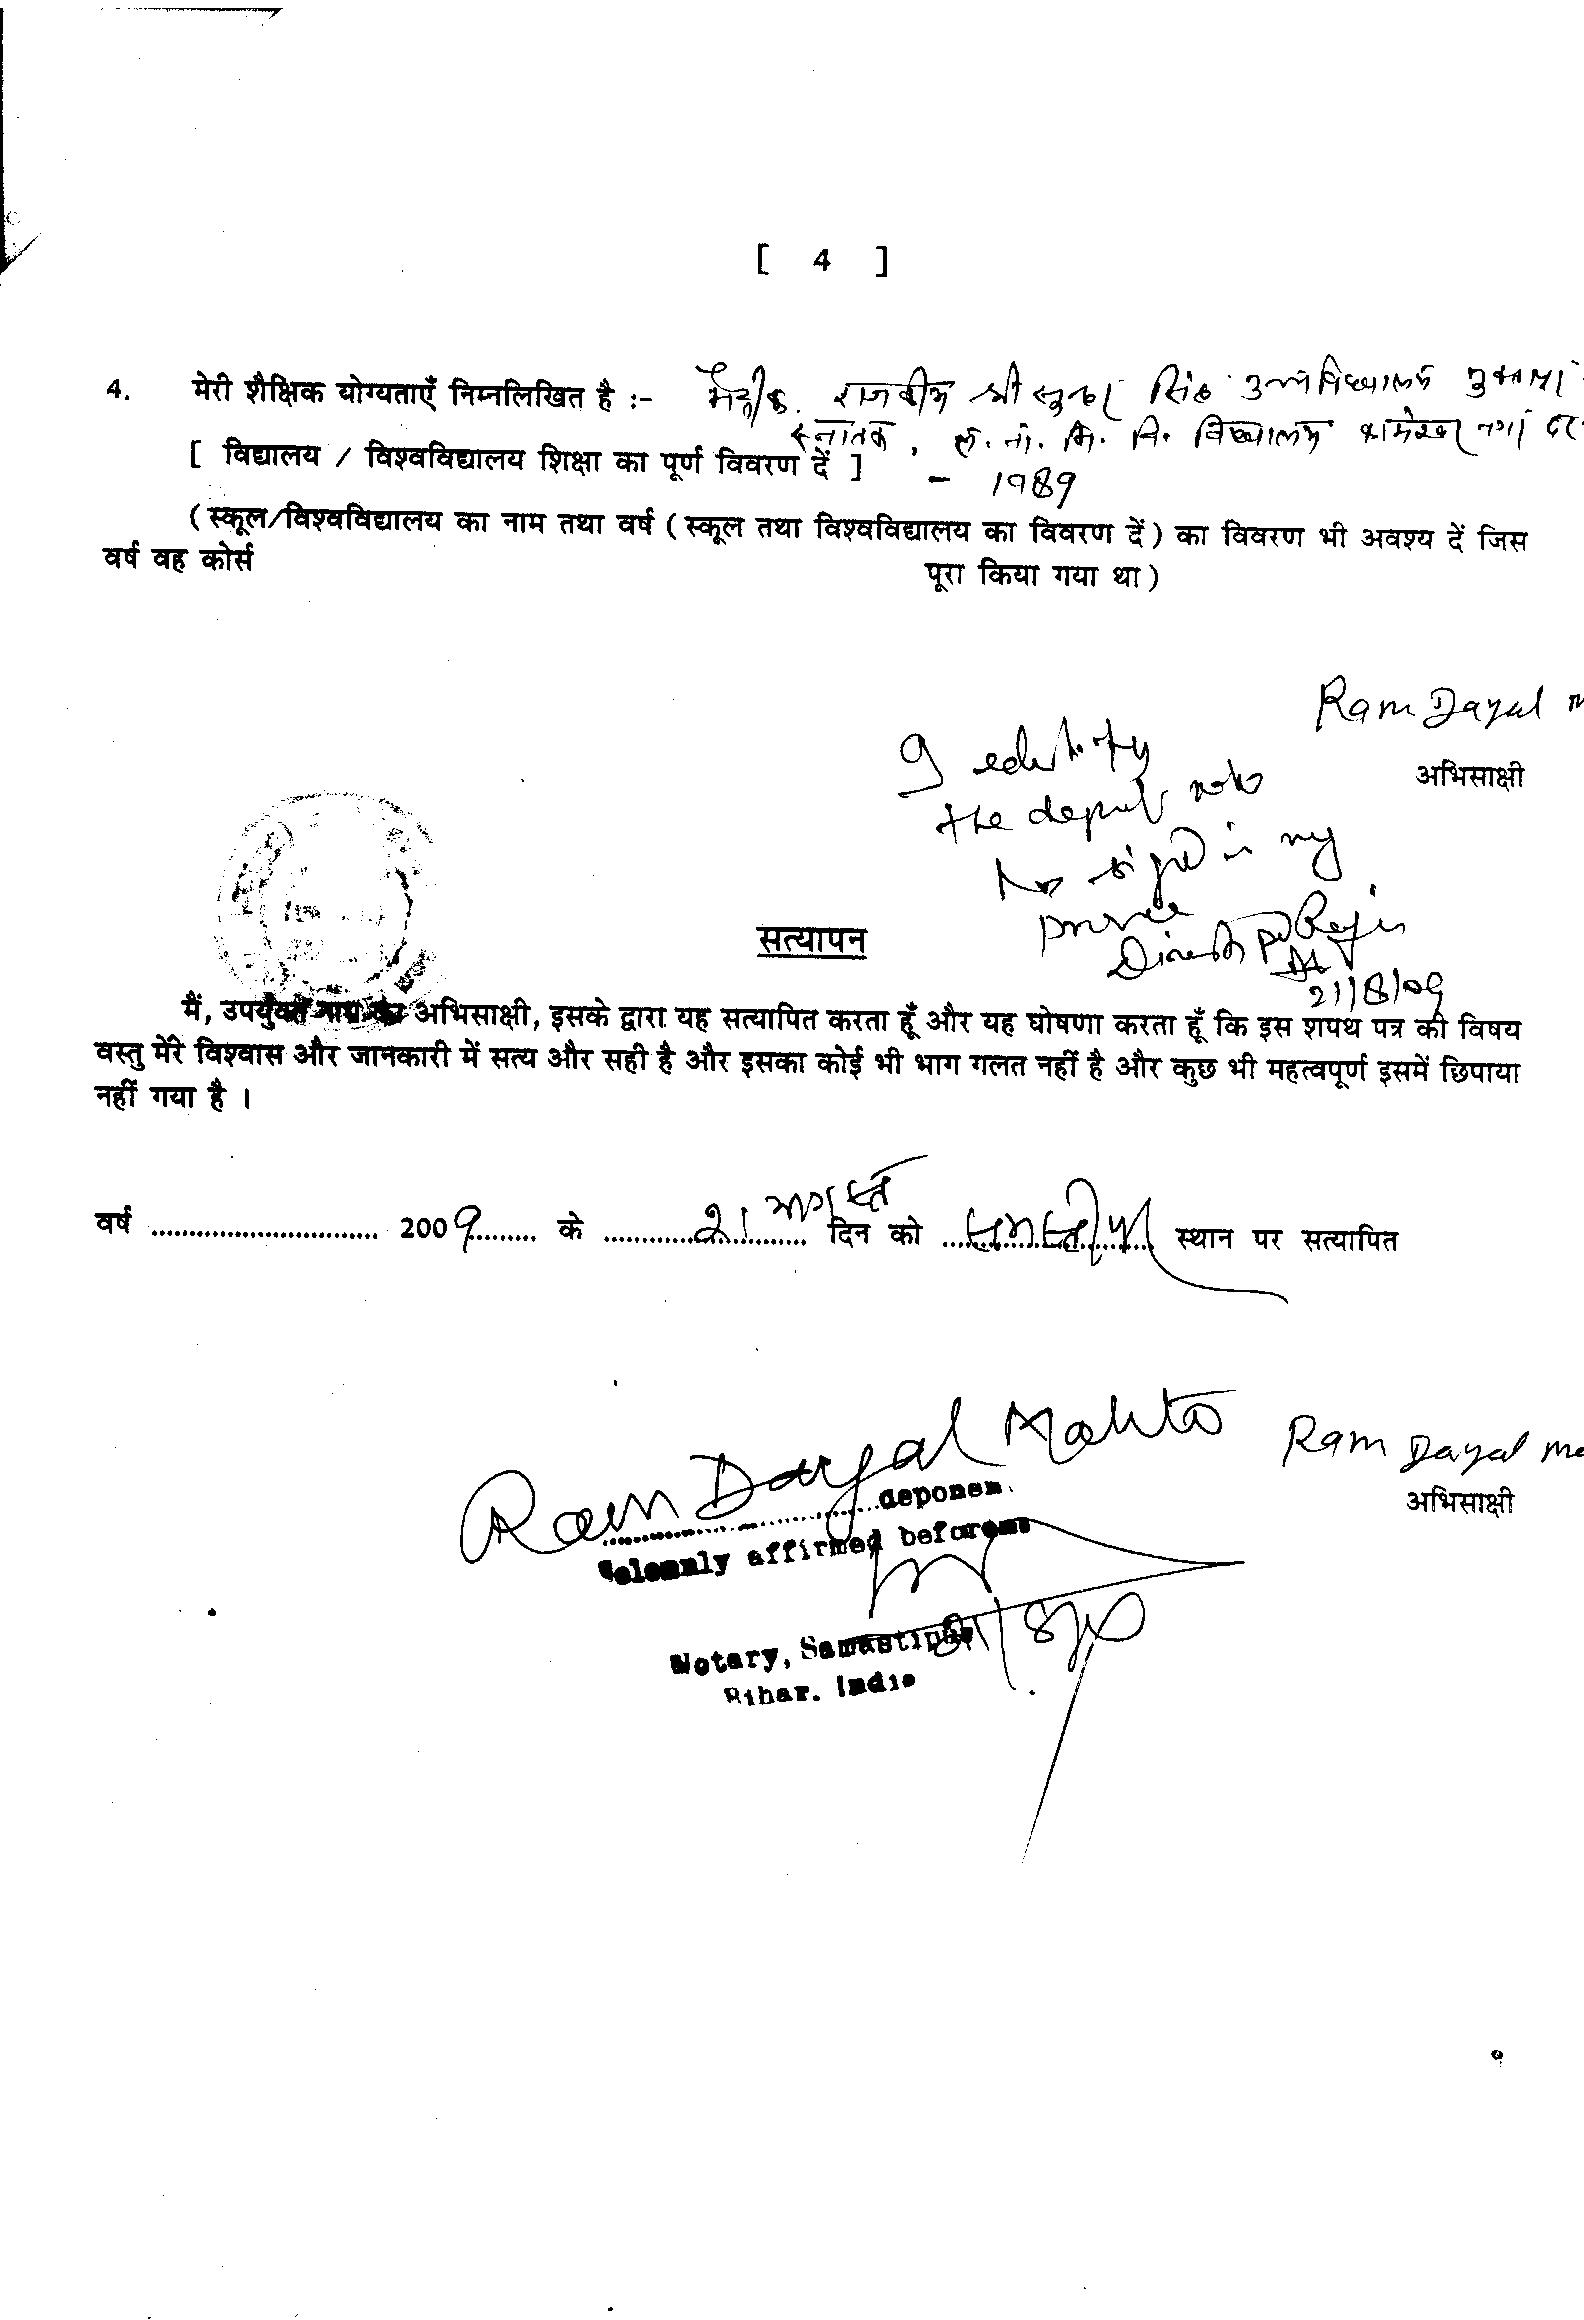 [ 4 ]
4. मेरी शैक्षिक योग्यताएँ निम्नलिखित है :- राजकीय श्री सिंह उच्च विद्यालय
स्नातक, ल. ना. मि. वि. विद्यालय कामेश्वर नगर
[ विद्यालय / विश्वविद्यालय शिक्षा का पूर्ण विवरण दें ] - 1989
(स्कूल/विश्वविद्यालय का नाम तथा वर्ष (स्कूल तथा विश्वविद्यालय का विवरण दें) का विवरण भी अवश्य दें जिस
वर्ष वह कोर्स पूरा किया गया था)
Ram Dayal
अभिसाक्षी
I
the
in my
21/8/09
सत्यापन
मैं, उपर्युक्त नाम का अभिसाक्षी, इसके द्वारा यह सत्यापित करता हूँ और यह घोषणा करता हूँ कि इस शपथ पत्र की विषय
वस्तु मेरे विश्वास और जानकारी में सत्य और सही है और इसका कोई भी भाग गलत नहीं है और कुछ भी महत्वपूर्ण इसमें छिपाया
नहीं गया है ।
वर्ष .............................. 2009......... के .........21 अगस्त......... दिन को ....समस्तीपुर.... स्थान पर सत्यापित
Ram Dayal Mahto
deponent
Ram Dayal
अभिसाक्षी
Solemnly affirmed before me
Notary, Samastipur
Bihar. India